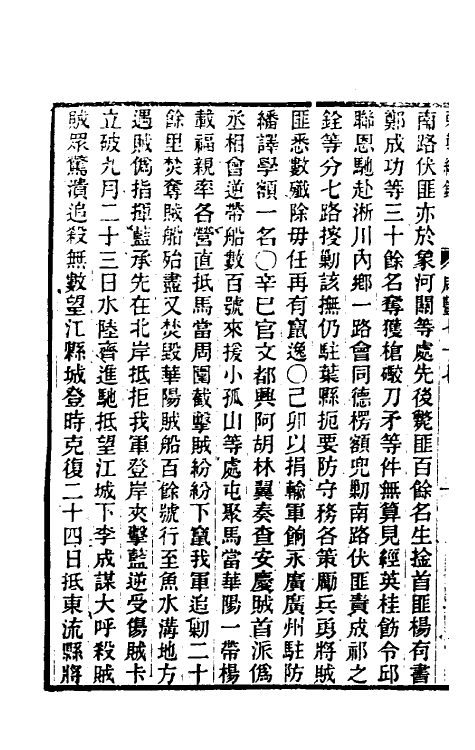 南路伏匪亦於象河關等處先後斃匪百餘名生擒首匪楊有書
鄭成功等三十餘名奪獲槍礮刀矛等件無算見經英桂飭令邱
聯恩馳赴淅川內鄉一路會同德楞額兜勦南路伏匪責成邴之
銓等分七路搜勦該撫仍駐葉縣扼要防守務各策勵兵勇將賊
匪悉數殲除毋任再有竄逸〇己卯以捐輸軍餉永廣廣州駐防
繙譯學額一名〇辛巳官文都興阿胡林翼奏查安慶賊首派僞
丞相會逆帶船數百號來援小孤山等處屯聚馬當華陽一帶楊
載福親率各營直抵馬當周圍截擊賊紛紛下竄我軍追勦二十
餘里焚奪賊船殆盡又焚毀華陽賊船百餘號行至魚水溝地方
遇賊僞指揮藍承先在北岸抵拒我軍登岸夾擊藍逆受傷賊卡
立破九月二十三日水陸齊進馳抵望江城下李成謀大呼殺賊
賊眾驚潰追殺無數望江縣城登時克復二十四日抵東流縣將